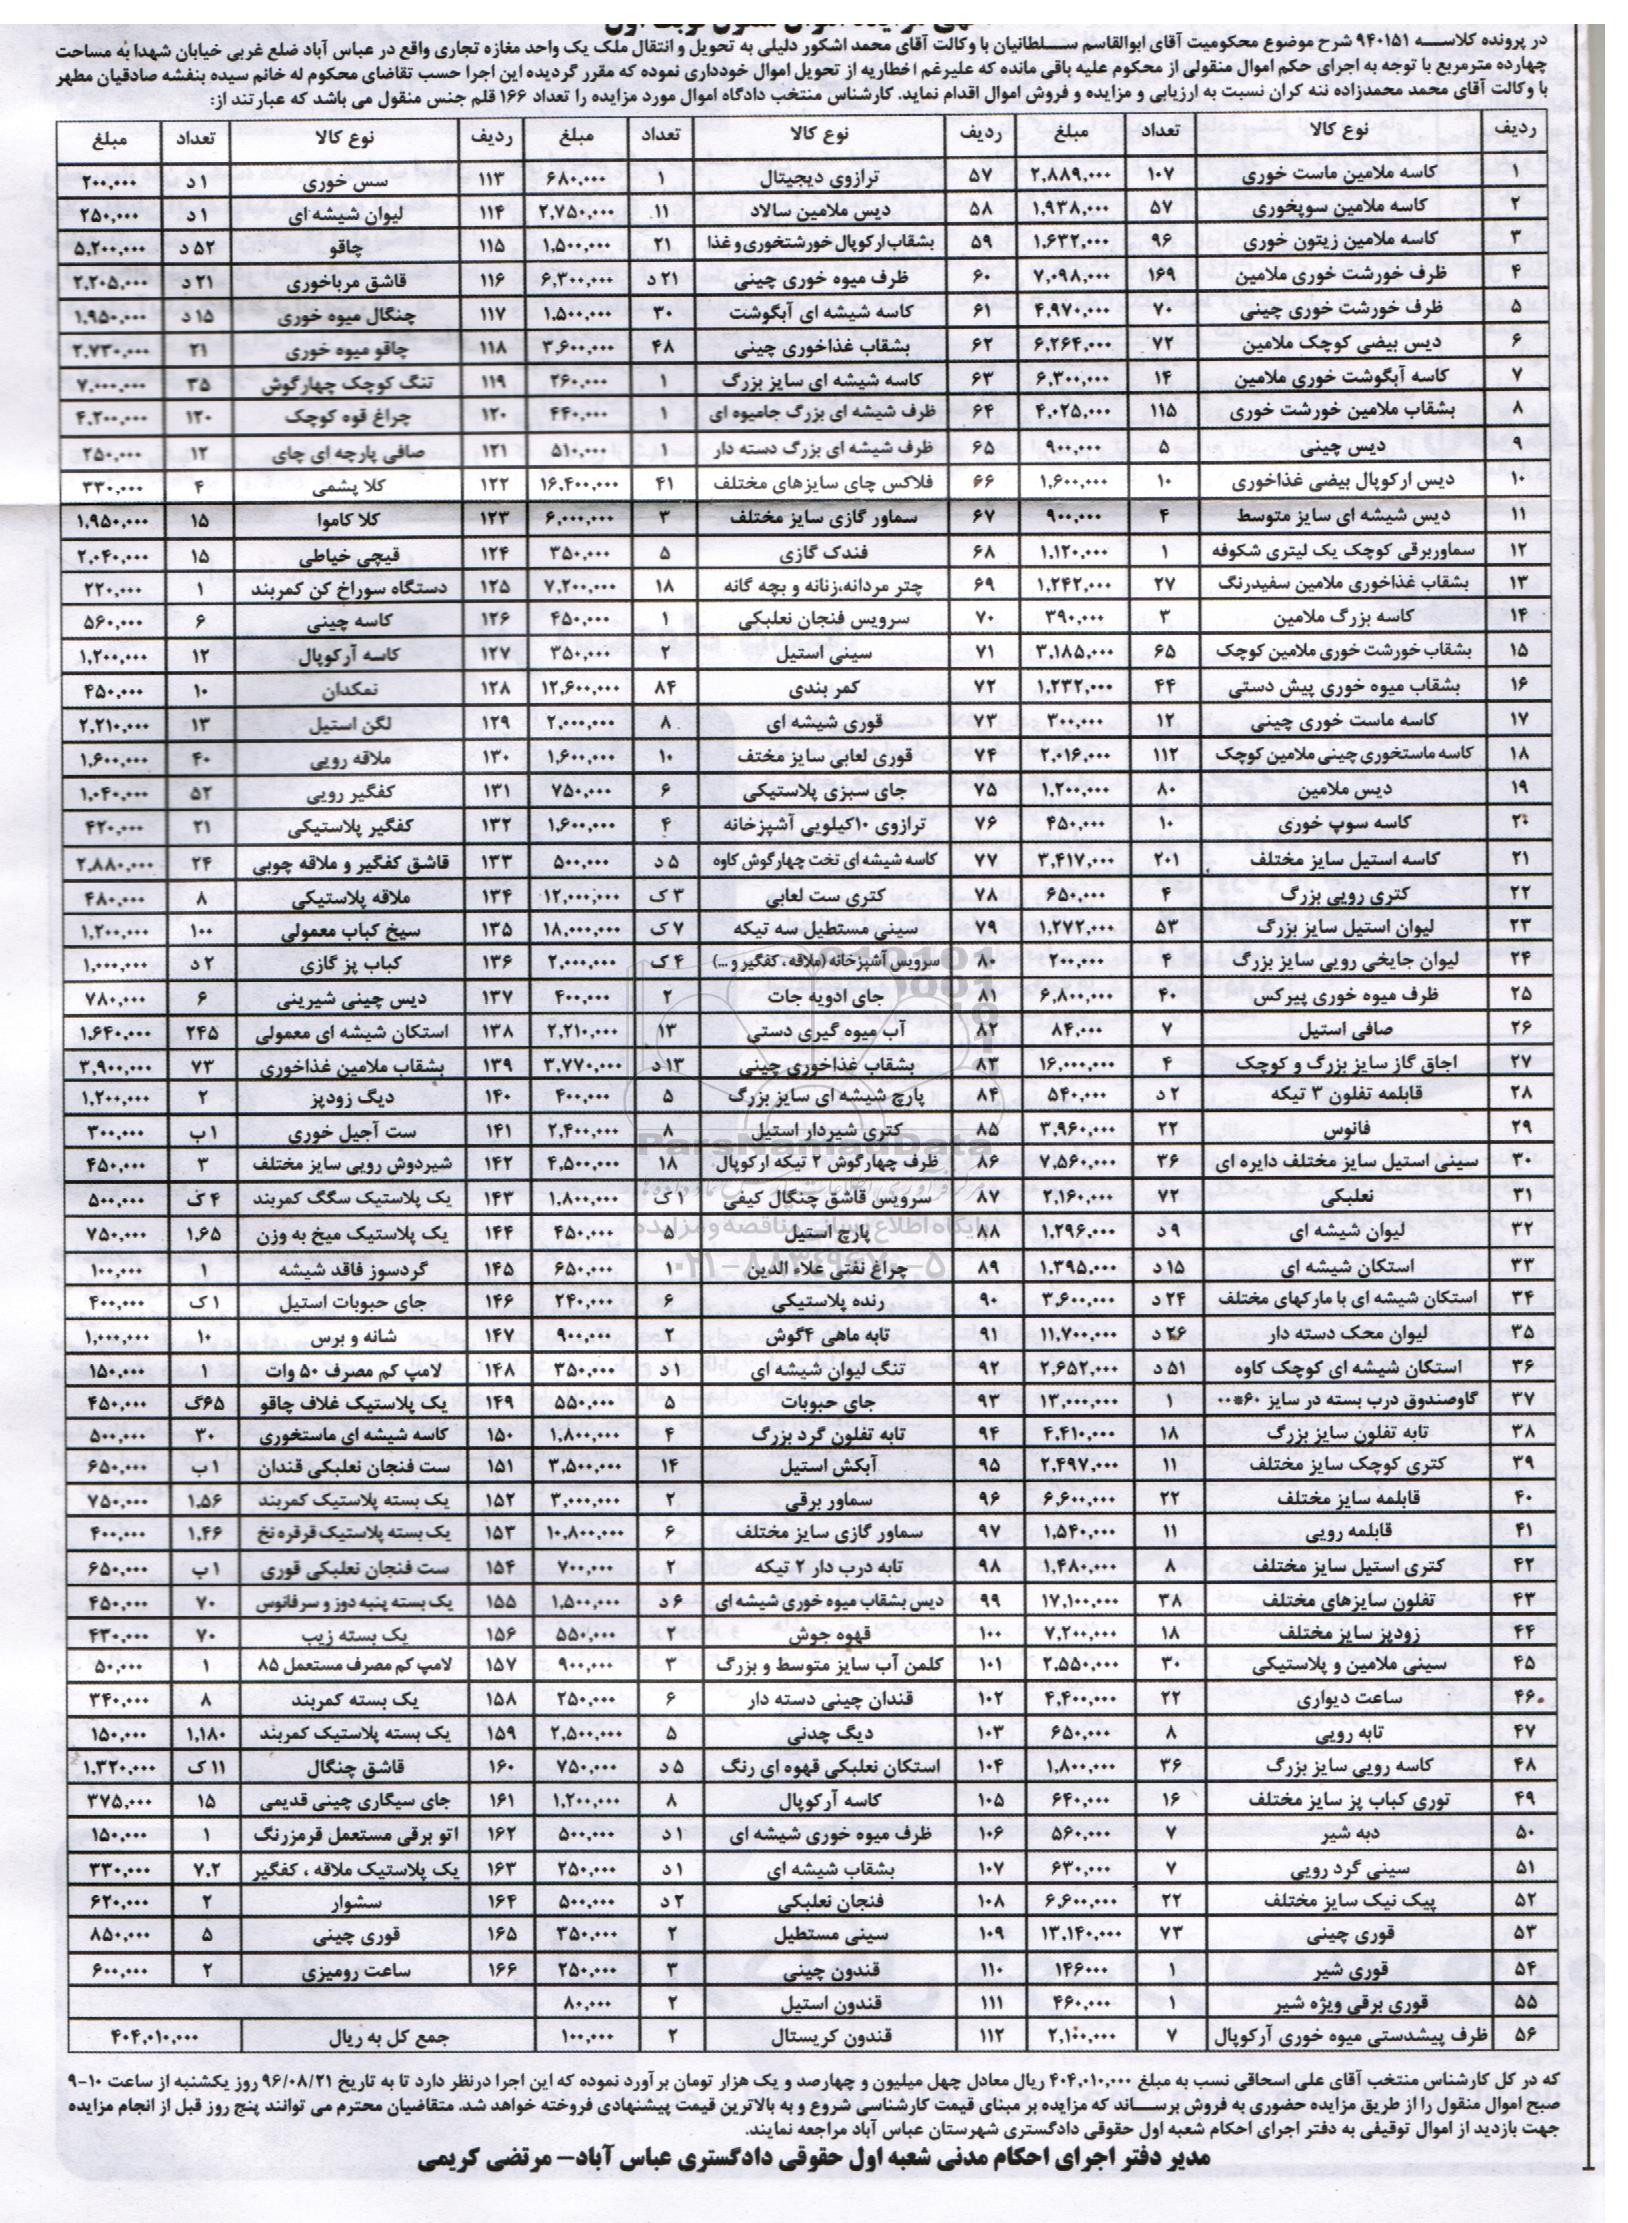 در پرونده کلاســـه ۹۴۰۱۵۱ شرح موضوع محکومیت آقای ابوالقاسم ســـلطانیان با وکالت آقای محمد اشکور دلیلی به تحویل و انتقال ملک یک واحد مغازه تجاری واقع در عباس آباد ضلع غربی خیابان شهدا به مساحت
چهارده مترمربع با توجه به اجرای حکم اموال منقولی از محکوم علیه باقی مانده که علیرغم اخطاریه از تحویل اموال خودداری نموده که مقرر گردیده این اجرا حسب تقاضای محکوم له خانم سیده بنفشه صادقیان مطهر
با وکالت آقای محمد محمدزاده ننه کران نسبت به ارزیابی و مزایده و فروش اموال اقدام نماید. کارشناس منتخب دادگاه اموال مورد مزایده را تعداد ۱۶۶ قلم جنس منقول می باشد که عبارتند از:
ردیف نوع کالا تعداد مبلغ ردیف نوع کالا تعداد مبلغ ردیف نوع کالا تعداد مبلغ
۱ کاسه ملامین ماست خوری ۱۰۷ ۲,۸۸۹,۰۰۰ ۵۷ ترازوی دیجیتال ۱ ۶۸۰,۰۰۰ ۱۱۳ سس خوری ۱ د ۲۰۰,۰۰۰
۲ کاسه ملامین سوپخوری ۵۷ ۱,۹۳۸,۰۰۰ ۵۸ دیس ملامین سالاد ۱۱ ۲,۷۵۰,۰۰۰ ۱۱۴ لیوان شیشه ای ۱ د ۲۵۰,۰۰۰
۳ کاسه ملامین زیتون خوری ۹۶ ۱,۶۳۲,۰۰۰ ۵۹ بشقاب ارکوپال خورشتخوری و غذا ۲۱ ۱,۵۰۰,۰۰۰ ۱۱۵ چاقو ۵۲ د ۵,۲۰۰,۰۰۰
۴ ظرف خورشت خوری ملامین ۱۶۹ ۷,۰۹۸,۰۰۰ ۶۰ ظرف میوه خوری چینی ۲۱ د ۶,۳۰۰,۰۰۰ ۱۱۶ قاشق مرباخوری ۲۱ د ۲,۲۰۵,۰۰۰
۵ ظرف خورشت خوری چینی ۷۰ ۴,۹۷۰,۰۰۰ ۶۱ کاسه شیشه ای آبگوشت ۳۰ ۱,۵۰۰,۰۰۰ ۱۱۷ چنگال میوه خوری ۱۵ د ۱,۹۵۰,۰۰۰
۶ دیس بیضی کوچک ملامین ۷۲ ۶,۲۶۴,۰۰۰ ۶۲ بشقاب غذاخوری چینی ۴۸ ۳,۶۰۰,۰۰۰ ۱۱۸ چاقو میوه خوری ۲۱ ۲,۷۳۰,۰۰۰
۷ کاسه آبگوشت خوری ملامین ۱۴ ۶,۳۰۰,۰۰۰ ۶۳ کاسه شیشه ای سایز بزرگ ۱ ۲۶۰,۰۰۰ ۱۱۹ تنگ کوچک چهارگوش ۳۵ ۷,۰۰۰,۰۰۰
۸ بشقاب ملامین خورشت خوری ۱۱۵ ۴,۰۲۵,۰۰۰ ۶۴ ظرف شیشه ای بزرگ جامیوه ای ۱ ۴۴۰,۰۰۰ ۱۲۰ چراغ قوه کوچک ۱۲۰ ۴,۲۰۰,۰۰۰
۹ دیس چینی ۵ ۹۰۰,۰۰۰ ۶۵ ظرف شیشه ای بزرگ دسته دار ۱ ۵۱۰,۰۰۰ ۱۲۱ صافی پارچه ای چای ۱۲ ۲۵۰,۰۰۰
۱۰ دیس ارکوپال بیضی غذاخوری ۱۰ ۱,۶۰۰,۰۰۰ ۶۶ فلاکس چای سایزهای مختلف ۴۱ ۱۶,۴۰۰,۰۰۰ ۱۲۲ کلا پشمی ۴ ۳۳۰,۰۰۰
۱۱ دیس شیشه ای سایز متوسط ۴ ۹۰۰,۰۰۰ ۶۷ سماور گازی سایز مختلف ۳ ۶,۰۰۰,۰۰۰ ۱۲۳ کلا کاموا ۱۵ ۱,۹۵۰,۰۰۰
۱۲ سماوربرقی کوچک یک لیتری شکوفه ۱ ۱,۱۲۰,۰۰۰ ۶۸ فندک گازی ۵ ۳۵۰,۰۰۰ ۱۲۴ قیچی خیاطی ۱۵ ۲,۰۴۰,۰۰۰
۱۳ بشقاب غذاخوری ملامین سفیدرنگ ۲۷ ۱,۲۴۲,۰۰۰ ۶۹ چتر مردانه،زنانه و بچه گانه ۱۸ ۷,۲۰۰,۰۰۰ ۱۲۵ دستگاه سوراخ کن کمربند ۱ ۲۲۰,۰۰۰
۱۴ کاسه بزرگ ملامین ۳ ۳۹۰,۰۰۰ ۷۰ سرویس فنجان نعلبکی ۱ ۴۵۰,۰۰۰ ۱۲۶ کاسه چینی ۶ ۵۶۰,۰۰۰
۱۵ بشقاب خورشت خوری ملامین کوچک ۶۵ ۳,۱۸۵,۰۰۰ ۷۱ سینی استیل ۲ ۳۵۰,۰۰۰ ۱۲۷ کاسه آرکوپال ۱۲ ۱,۲۰۰,۰۰۰
۱۶ بشقاب میوه خوری پیش دستی ۴۴ ۱,۲۳۲,۰۰۰ ۷۲ کمر بندی ۸۴ ۱۲,۶۰۰,۰۰۰ ۱۲۸ نمکدان ۱۰ ۴۵۰,۰۰۰
۱۷ کاسه ماست خوری چینی ۱۲ ۳۰۰,۰۰۰ ۷۳ قوری شیشه ای ۸ ۲,۰۰۰,۰۰۰ ۱۲۹ لگن استیل ۱۳ ۲,۲۱۰,۰۰۰
۱۸ کاسه ماستخوری چینی ملامین کوچک ۱۱۲ ۲,۰۱۶,۰۰۰ ۷۴ قوری لعابی سایز مختف ۱۰ ۱,۶۰۰,۰۰۰ ۱۳۰ ملاقه رویی ۴۰ ۱,۶۰۰,۰۰۰
۱۹ دیس ملامین ۸۰ ۱,۲۰۰,۰۰۰ ۷۵ جای سبزی پلاستیکی ۶ ۷۵۰,۰۰۰ ۱۳۱ کفگیر رویی ۵۲ ۱,۰۴۰,۰۰۰
۲۰ کاسه سوپ خوری ۱۰ ۴۵۰,۰۰۰ ۷۶ ترازوی ۱۰کیلویی آشپزخانه ۴ ۱,۶۰۰,۰۰۰ ۱۳۲ کفگیر پلاستیکی ۲۱ ۴۲۰,۰۰۰
۲۱ کاسه استیل سایز مختلف ۲۰۱ ۳,۴۱۷,۰۰۰ ۷۷ کاسه شیشه ای تخت چهارگوش کاوه ۵ د ۵۰۰,۰۰۰ ۱۳۳ قاشق کفگیر و ملاقه چوبی ۲۴ ۲,۸۸۰,۰۰۰
۲۲ کتری رویی بزرگ ۴ ۶۵۰,۰۰۰ ۷۸ کتری ست لعابی ۳ ک ۱۲,۰۰۰,۰۰۰ ۱۳۴ ملاقه پلاستیکی ۸ ۴۸۰,۰۰۰
۲۳ لیوان استیل سایز بزرگ ۵۳ ۱,۲۷۲,۰۰۰ ۷۹ سینی مستطیل سه تیکه ۷ ک ۱۸,۰۰۰,۰۰۰ ۱۳۵ سیخ کباب معمولی ۱۰۰ ۱,۲۰۰,۰۰۰
۲۴ لیوان جایخی رویی سایز بزرگ ۴ ۲۰۰,۰۰۰ ۸۰ سرویس آشپزخانه (ملاقه، کفگیر و ...) ۴ ک ۲,۰۰۰,۰۰۰ ۱۳۶ کباب پز گازی ۲ د ۱,۰۰۰,۰۰۰
۲۵ ظرف میوه خوری پیرکس ۴۰ ۶,۸۰۰,۰۰۰ ۸۱ جای ادویه جات ۲ ۴۰۰,۰۰۰ ۱۳۷ دیس چینی شیرینی ۶ ۷۸۰,۰۰۰
۲۶ صافی استیل ۷ ۸۴,۰۰۰ ۸۲ آب میوه گیری دستی ۱۳ ۲,۲۱۰,۰۰۰ ۱۳۸ استکان شیشه ای معمولی ۲۴۵ ۱,۶۴۰,۰۰۰
۲۷ اجاق گاز سایز بزرگ و کوچک ۴ ۱۶,۰۰۰,۰۰۰ ۸۳ بشقاب غذاخوری چینی ۱۳ د ۳,۷۷۰,۰۰۰ ۱۳۹ بشقاب ملامین غذاخوری ۷۳ ۳,۹۰۰,۰۰۰
۲۸ قابلمه تفلون ۳ تیکه ۲ د ۵۴۰,۰۰۰ ۸۴ پارچ شیشه ای سایز بزرگ ۵ ۴۰۰,۰۰۰ ۱۴۰ دیگ زودپز ۲ ۱,۲۰۰,۰۰۰
۲۹ فانوس ۲۲ ۳,۹۶۰,۰۰۰ ۸۵ کتری شیردار استیل ۸ ۲,۴۰۰,۰۰۰ ۱۴۱ ست آجیل خوری ۱ ب ۳۰۰,۰۰۰
۳۰ سینی استیل سایز مختلف دایره ای ۳۶ ۷,۵۶۰,۰۰۰ ۸۶ ظرف چهارگوش ۲ تیکه ارکوپال ۱۸ ۴,۵۰۰,۰۰۰ ۱۴۲ شیردوش رویی سایز مختلف ۳ ۴۵۰,۰۰۰
۳۱ نعلبکی ۷۲ ۲,۱۶۰,۰۰۰ ۸۷ سرویس قاشق چنگال کیفی ۱ ک ۱,۸۰۰,۰۰۰ ۱۴۳ یک پلاستیک سگک کمربند ۴ ک ۵۰۰,۰۰۰
۳۲ لیوان شیشه ای ۹ د ۱,۲۹۶,۰۰۰ ۸۸ پارچ استیل ۵ ۴۵۰,۰۰۰ ۱۴۴ یک پلاستیک میخ به وزن ۱,۶۵ ۷۵۰,۰۰۰
۳۳ استکان شیشه ای ۱۵ د ۱,۳۹۵,۰۰۰ ۸۹ چراغ نفتی علاء الدین ۱ ۶۵۰,۰۰۰ ۱۴۵ گردسوز فاقد شیشه ۱ ۱۰۰,۰۰۰
۳۴ استکان شیشه ای با مارکهای مختلف ۲۴ د ۳,۶۰۰,۰۰۰ ۹۰ رنده پلاستیکی ۶ ۲۴۰,۰۰۰ ۱۴۶ جای حبوبات استیل ۱ ک ۴۰۰,۰۰۰
۳۵ لیوان محک دسته دار ۲۶ د ۱۱,۷۰۰,۰۰۰ ۹۱ تابه ماهی ۴گوش ۲ ۹۰۰,۰۰۰ ۱۴۷ شانه و برس ۱۰ ۱,۰۰۰,۰۰۰
۳۶ استکان شیشه ای کوچک کاوه ۵۱ د ۲,۶۵۲,۰۰۰ ۹۲ تنگ لیوان شیشه ای ۱ د ۳۵۰,۰۰۰ ۱۴۸ لامپ کم مصرف ۵۰ وات ۱ ۱۵۰,۰۰۰
۳۷ گاوصندوق درب بسته در سایز ۶۰*۰۰ ۱ ۱۳,۰۰۰,۰۰۰ ۹۳ جای حبوبات ۵ ۵۵۰,۰۰۰ ۱۴۹ یک پلاستیک غلاف چاقو ۶۵گ ۴۵۰,۰۰۰
۳۸ تابه تفلون سایز بزرگ ۱۸ ۴,۴۱۰,۰۰۰ ۹۴ تابه تفلون گرد بزرگ ۴ ۱,۸۰۰,۰۰۰ ۱۵۰ کاسه شیشه ای ماستخوری ۳۰ ۵۰۰,۰۰۰
۳۹ کتری کوچک سایز مختلف ۱۱ ۲,۴۹۷,۰۰۰ ۹۵ آبکش استیل ۱۴ ۳,۵۰۰,۰۰۰ ۱۵۱ ست فنجان نعلبکی قندان ۱ ب ۶۵۰,۰۰۰
۴۰ قابلمه سایز مختلف ۲۲ ۶,۶۰۰,۰۰۰ ۹۶ سماور برقی ۲ ۳,۰۰۰,۰۰۰ ۱۵۲ یک بسته پلاستیک کمربند ۱,۵۶ ۷۵۰,۰۰۰
۴۱ قابلمه رویی ۱۱ ۱,۵۴۰,۰۰۰ ۹۷ سماور گازی سایز مختلف ۶ ۱۰,۸۰۰,۰۰۰ ۱۵۳ یک بسته پلاستیک قرقره نخ ۱,۴۶ ۴۰۰,۰۰۰
۴۲ کتری استیل سایز مختلف ۸ ۱,۴۸۰,۰۰۰ ۹۸ تابه درب دار ۲ تیکه ۲ ۷۰۰,۰۰۰ ۱۵۴ ست فنجان نعلبکی قوری ۱ ب ۶۵۰,۰۰۰
۴۳ تفلون سایزهای مختلف ۳۸ ۱۷,۱۰۰,۰۰۰ ۹۹ دیس بشقاب میوه خوری شیشه ای ۶ د ۱,۵۰۰,۰۰۰ ۱۵۵ یک بسته پنبه دوز و سرفانوس ۷۰ ۴۵۰,۰۰۰
۴۴ زودپز سایز مختلف ۱۸ ۷,۲۰۰,۰۰۰ ۱۰۰ قهوه جوش ۲ ۵۵۰,۰۰۰ ۱۵۶ یک بسته زیپ ۷۰ ۴۳۰,۰۰۰
۴۵ سینی ملامین و پلاستیکی ۳۰ ۲,۵۵۰,۰۰۰ ۱۰۱ کلمن آب سایز متوسط و بزرگ ۳ ۹۰۰,۰۰۰ ۱۵۷ لامپ کم مصرف مستعمل ۸۵ ۱ ۵۰,۰۰۰
۴۶ ساعت دیواری ۲۲ ۴,۴۰۰,۰۰۰ ۱۰۲ قندان چینی دسته دار ۶ ۲۵۰,۰۰۰ ۱۵۸ یک بسته کمربند ۸ ۳۴۰,۰۰۰
۴۷ تابه رویی ۸ ۶۵۰,۰۰۰ ۱۰۳ دیگ چدنی ۵ ۲,۵۰۰,۰۰۰ ۱۵۹ یک بسته پلاستیک کمربند ۱,۱۸۰ ۱۵۰,۰۰۰
۴۸ کاسه رویی سایز بزرگ ۳۶ ۱,۸۰۰,۰۰۰ ۱۰۴ استکان نعلبکی قهوه ای رنگ ۵ د ۷۵۰,۰۰۰ ۱۶۰ قاشق چنگال ۱۱ ک ۱,۳۲۰,۰۰۰
۴۹ توری کباب پز سایز مختلف ۱۶ ۶۴۰,۰۰۰ ۱۰۵ کاسه آرکوپال ۸ ۱,۲۰۰,۰۰۰ ۱۶۱ جای سیگاری چینی قدیمی ۱۵ ۳۷۵,۰۰۰
۵۰ دبه شیر ۷ ۵۶۰,۰۰۰ ۱۰۶ ظرف میوه خوری شیشه ای ۱ د ۵۰۰,۰۰۰ ۱۶۲ اتو برقی مستعمل قرمزرنگ ۱ ۱۵۰,۰۰۰
۵۱ سینی گرد رویی ۷ ۶۳۰,۰۰۰ ۱۰۷ بشقاب شیشه ای ۱ د ۲۵۰,۰۰۰ ۱۶۳ یک پلاستیک ملاقه ، کفگیر ۷.۲ ۳۳۰,۰۰۰
۵۲ پیک نیک سایز مختلف ۲۲ ۶,۶۰۰,۰۰۰ ۱۰۸ فنجان نعلبکی ۲ د ۵۰۰,۰۰۰ ۱۶۴ سشوار ۲ ۶۲۰,۰۰۰
۵۳ قوری چینی ۷۳ ۱۳,۱۴۰,۰۰۰ ۱۰۹ سینی مستطیل ۲ ۳۵۰,۰۰۰ ۱۶۵ قوری چینی ۵ ۸۵۰,۰۰۰
۵۴ قوری شیر ۱ ۱۴۶۰۰۰ ۱۱۰ قندون چینی ۳ ۲۵۰,۰۰۰ ۱۶۶ ساعت رومیزی ۲ ۶۰۰,۰۰۰
۵۵ قوری برقی ویژه شیر ۱ ۴۶۰,۰۰۰ ۱۱۱ قندون استیل ۲ ۸۰,۰۰۰
۵۶ ظرف پیشدستی میوه خوری آرکوپال ۷ ۲,۱۰۰,۰۰۰ ۱۱۲ قندون کریستال ۲ ۱۰۰,۰۰۰ جمع کل به ریال ۴۰۴,۰۱۰,۰۰۰
که در کل کارشناس منتخب آقای علی اسحاقی نسب به مبلغ ۴۰۴,۰۱۰,۰۰۰ ریال معادل چهل میلیون و چهارصد و یک هزار تومان برآورد نموده که این اجرا درنظر دارد تا به تاریخ ۹۶/۰۸/۲۱ روز یکشنبه از ساعت ۱۰-۹
صبح اموال منقول را از طریق مزایده حضوری به فروش برســـاند که مزایده بر مبنای قیمت کارشناسی شروع و به بالاترین قیمت پیشنهادی فروخته خواهد شد. متقاضیان محترم می توانند پنج روز قبل از انجام مزایده
جهت بازدید از اموال توقیفی به دفتر اجرای احکام شعبه اول حقوقی دادگستری شهرستان عباس آباد مراجعه نمایند.
مدیر دفتر اجرای احکام مدنی شعبه اول حقوقی دادگستری عباس آباد– مرتضی کریمی
ParsNamadData
پایگاه اطلاع رسانی مناقصه و مزایده
۰۲۱-۸۸۳۴۹۶۷۰-۵